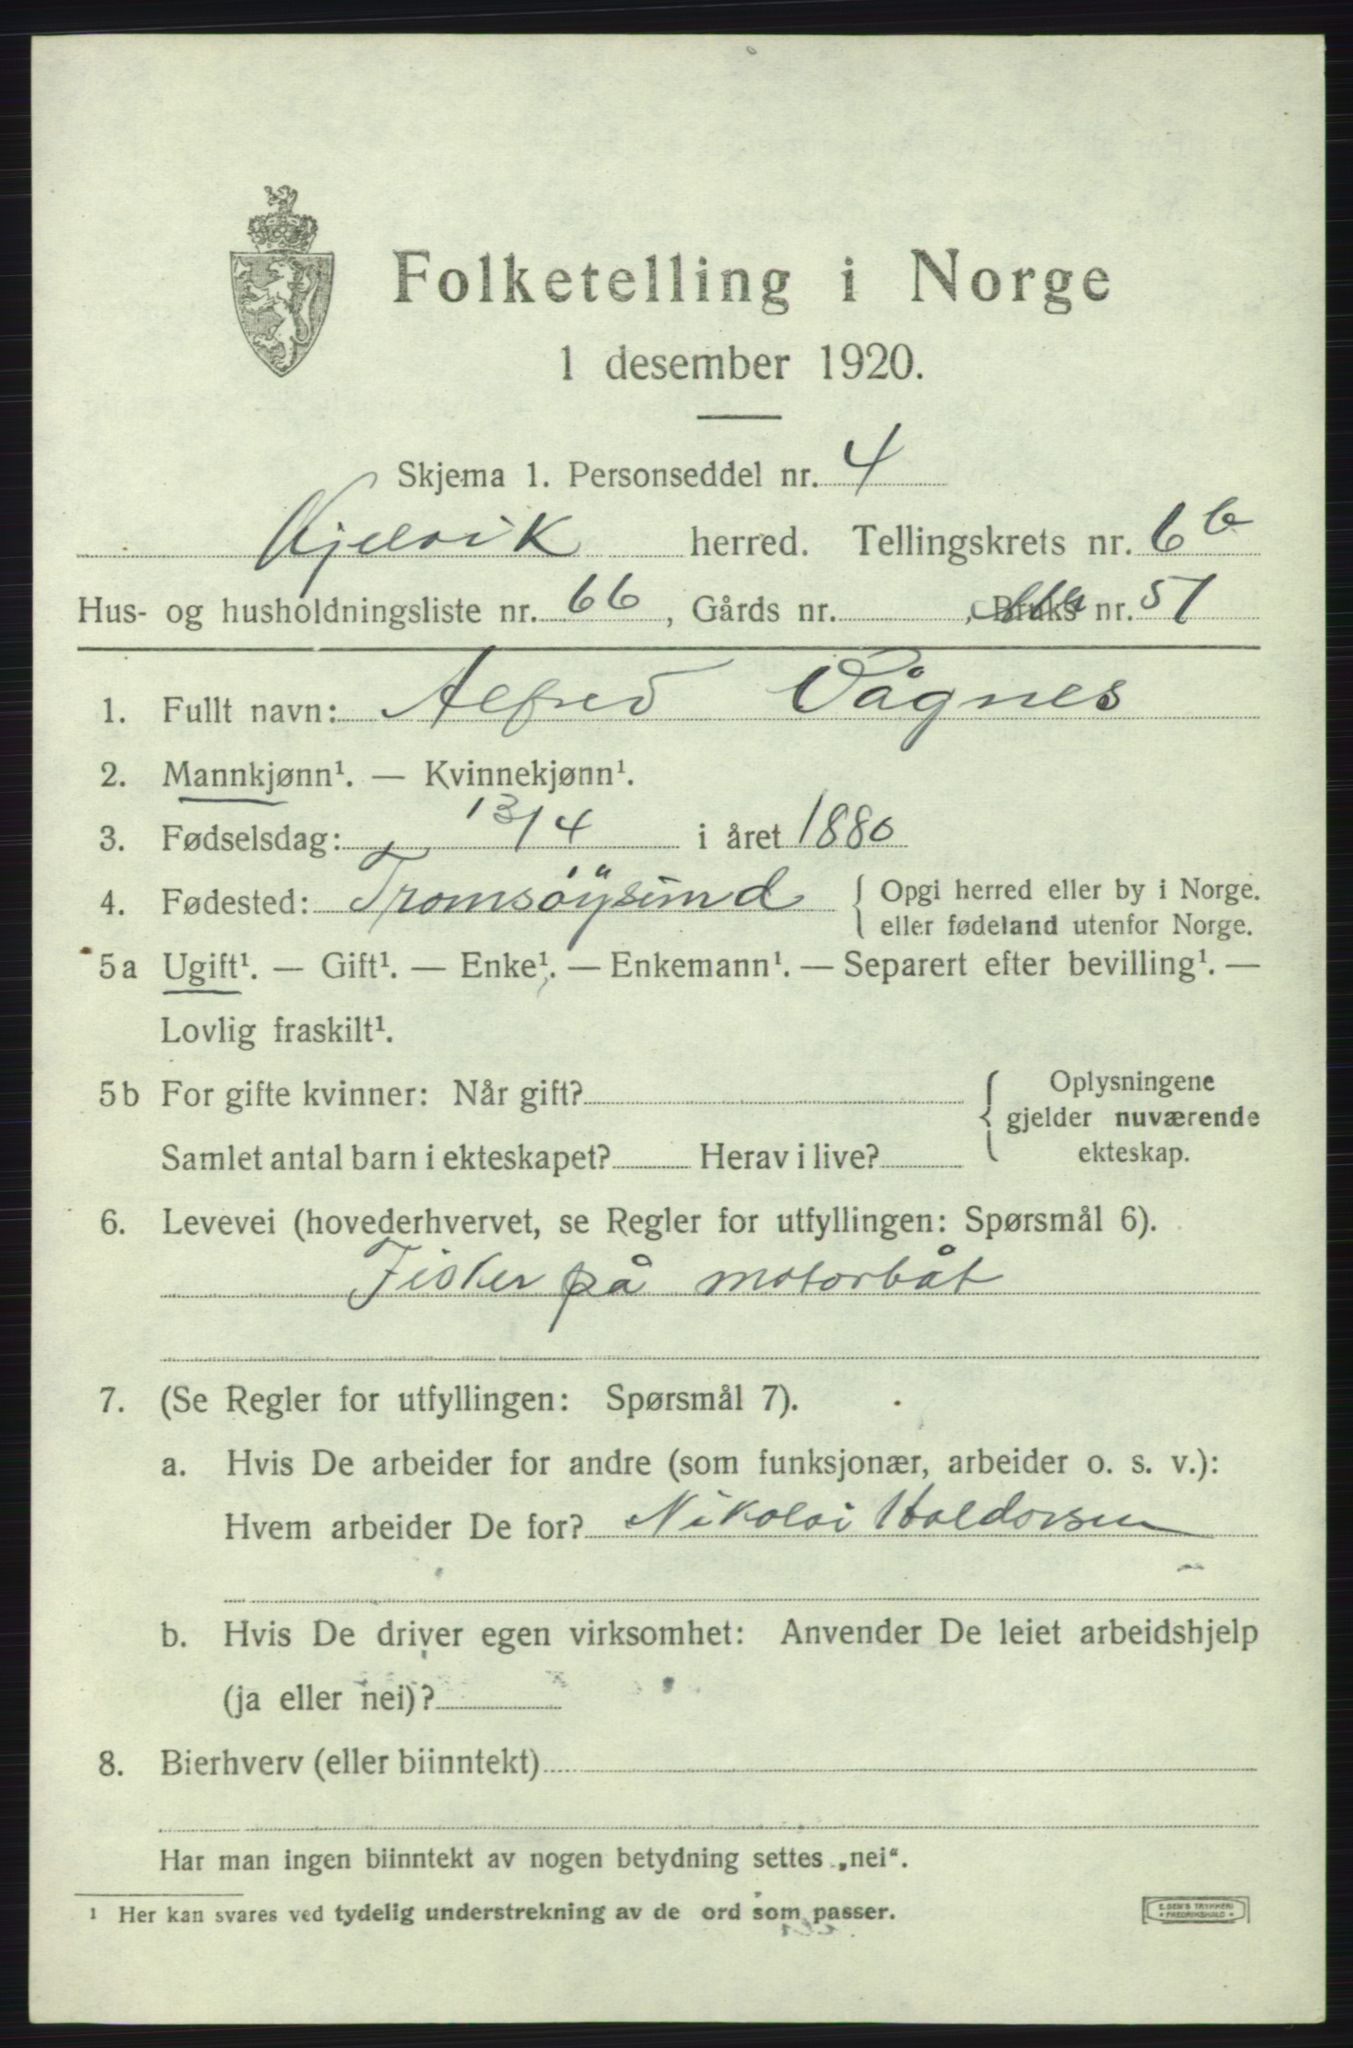 Folketelling i Norge
1 desember 1920.
Skjema 1. Personseddel nr. 4
Kjelvik herred. Tellingskrets nr. 6 b
Hus- og husholdningsliste nr. 66, Gårds nr. , Bruks nr. 51
1. Fullt navn: Alfred Vågnes
2. Mannkjønn¹. — Kvinnekjønn¹.
3. Fødselsdag: 13/4 i året 1880
4. Fødested: Tromsöysund { Opgi herred eller by i Norge.
eller fødeland utenfor Norge.
5a Ugift¹. — Gift¹. — Enke¹. — Enkemann¹. — Separert efter bevilling¹. —
Lovlig fraskilt¹.
5b For gifte kvinner: Når gift? { Oplysningene
gjelder nuværende
Samlet antal barn i ekteskapet? Herav i live? ekteskap.
6. Levevei (hovederhvervet, se Regler for utfyllingen: Spørsmål 6).
Fisker på motorbåt
7. (Se Regler for utfyllingen: Spørsmål 7).
a. Hvis De arbeider for andre (som funksjonær, arbeider o. s. v.):
Hvem arbeider De for? Nikolai Haldorsen
b. Hvis De driver egen virksomhet: Anvender De leiet arbeidshjelp
(ja eller nei)?
8. Bierhverv (eller biinntekt)
Har man ingen biinntekt av nogen betydning settes „nei“.
¹ Her kan svares ved tydelig understrekning av de ord som passer.
E. SEM'S TRYKKERI
FREDRIKSHALD